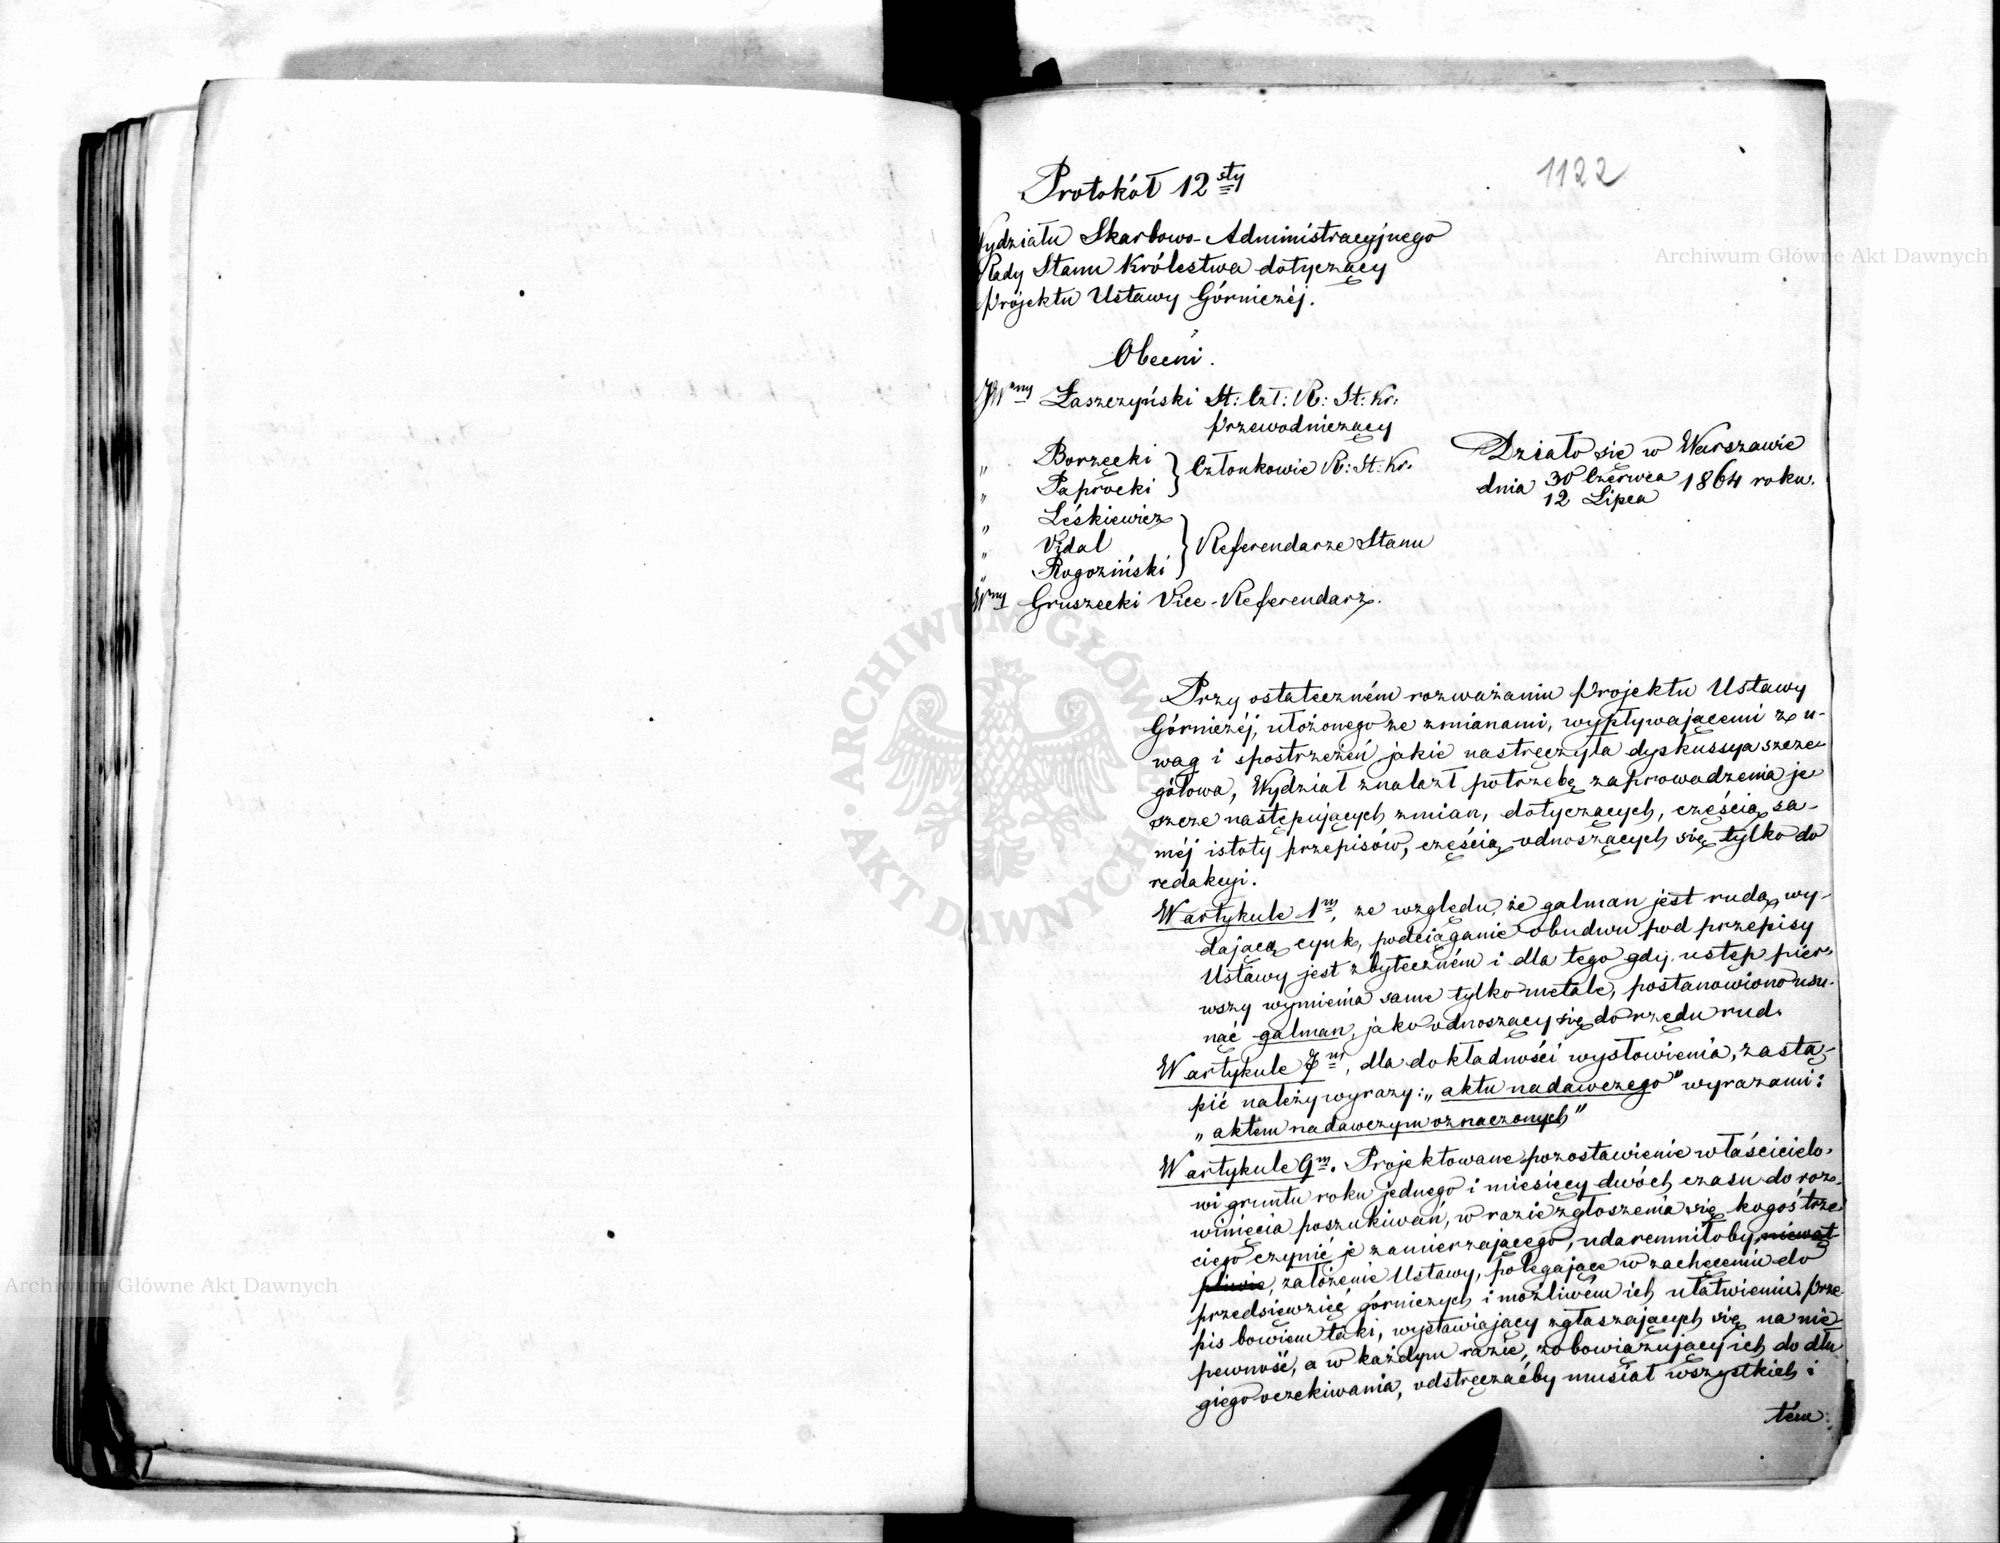 1122
Protokół 12sty
Wydziału Skarbowo-Administracyjnego
Rady Stanu Królestwa dotyczący
projektu Ustawy Górniczéj.
Obecni.
JWny Łaszczyński St: Czł: R: St: Kr:
przewodniczący
" Borzęcki } Członkowie R: St: Kr.
" Paprocki
" Leśkiewicz
" Vidal } Referendarze Stanu
" Rogoziński
Wny Gruszecki Vice-Referendarz.
Działo się w Warszawie
dnia 30 Czerwca 1864 roku.
12 Lipca
Przy ostateczném rozważaniu projektu Ustawy
Górniczéj, ułożonego ze zmianami, wypływającemi z u-
wag i spostrzeżeń jakie nastręczyła dyskussya szcze-
gółowa, Wydział znalazł potrzebę zaprowadzenia je-
szcze następujących zmian, dotyczących, częścią sa-
méj istoty przepisów, częścią odnoszących się tylko do
redakcyi.
W artykule 1m, ze względu, że galman jest rudą wy-
dającą cynk, podciąganie obudwu pod przepisy
Ustawy jest zbyteczném i dla tego gdy ustęp pier-
wszy wymienia same tylko metale, postanowiono usu-
nąć galman, jako odnoszący się do rzędu rud.
W artykule 7m, dla dokładności wysłowienia, zastą-
pić należy wyrazy: „aktu nadawczego" wyrazami:
„aktem nadawczym oznaczonych"
W artykule 9m. Projektowane pozostawienie właścicielo-
wi gruntu roku jednego i miesięcy dwóch czasu do roz-
winięcia poszukiwań, w razie zgłoszenia się kogoś trze-
ciego czynić je zamierzającego, udaremniłoby, niewąt-
pliwie, założenie Ustawy, polegające w zachęceniu do
przedsięwzięć górniczych i możliwém ich ułatwieniu, prze-
pis bowiem taki, wystawiający zgłaszających się na nie-
pewność, a w każdym razie, zobowiązujący ich do dłu-
giego oczekiwania, odstręczaćby musiał wszystkich i
tém
Archiwum Główne Akt Dawnych
Archiwum Główne Akt Dawnych
ARCHIWUM GŁÓWNE
AKT DAWNYCH